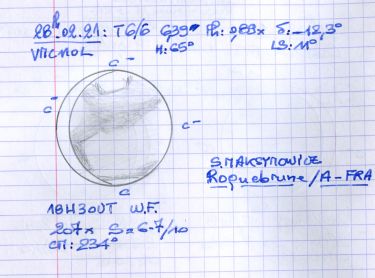 28.02.21: T6/6 6,39"
H: 65° LS: 11°
C-
C-
C-
C
S.MAKSYMOWICZ
Roquebrune/A-FRA
18H30UT W.F.
207x S=6-7/10
CM: 234°